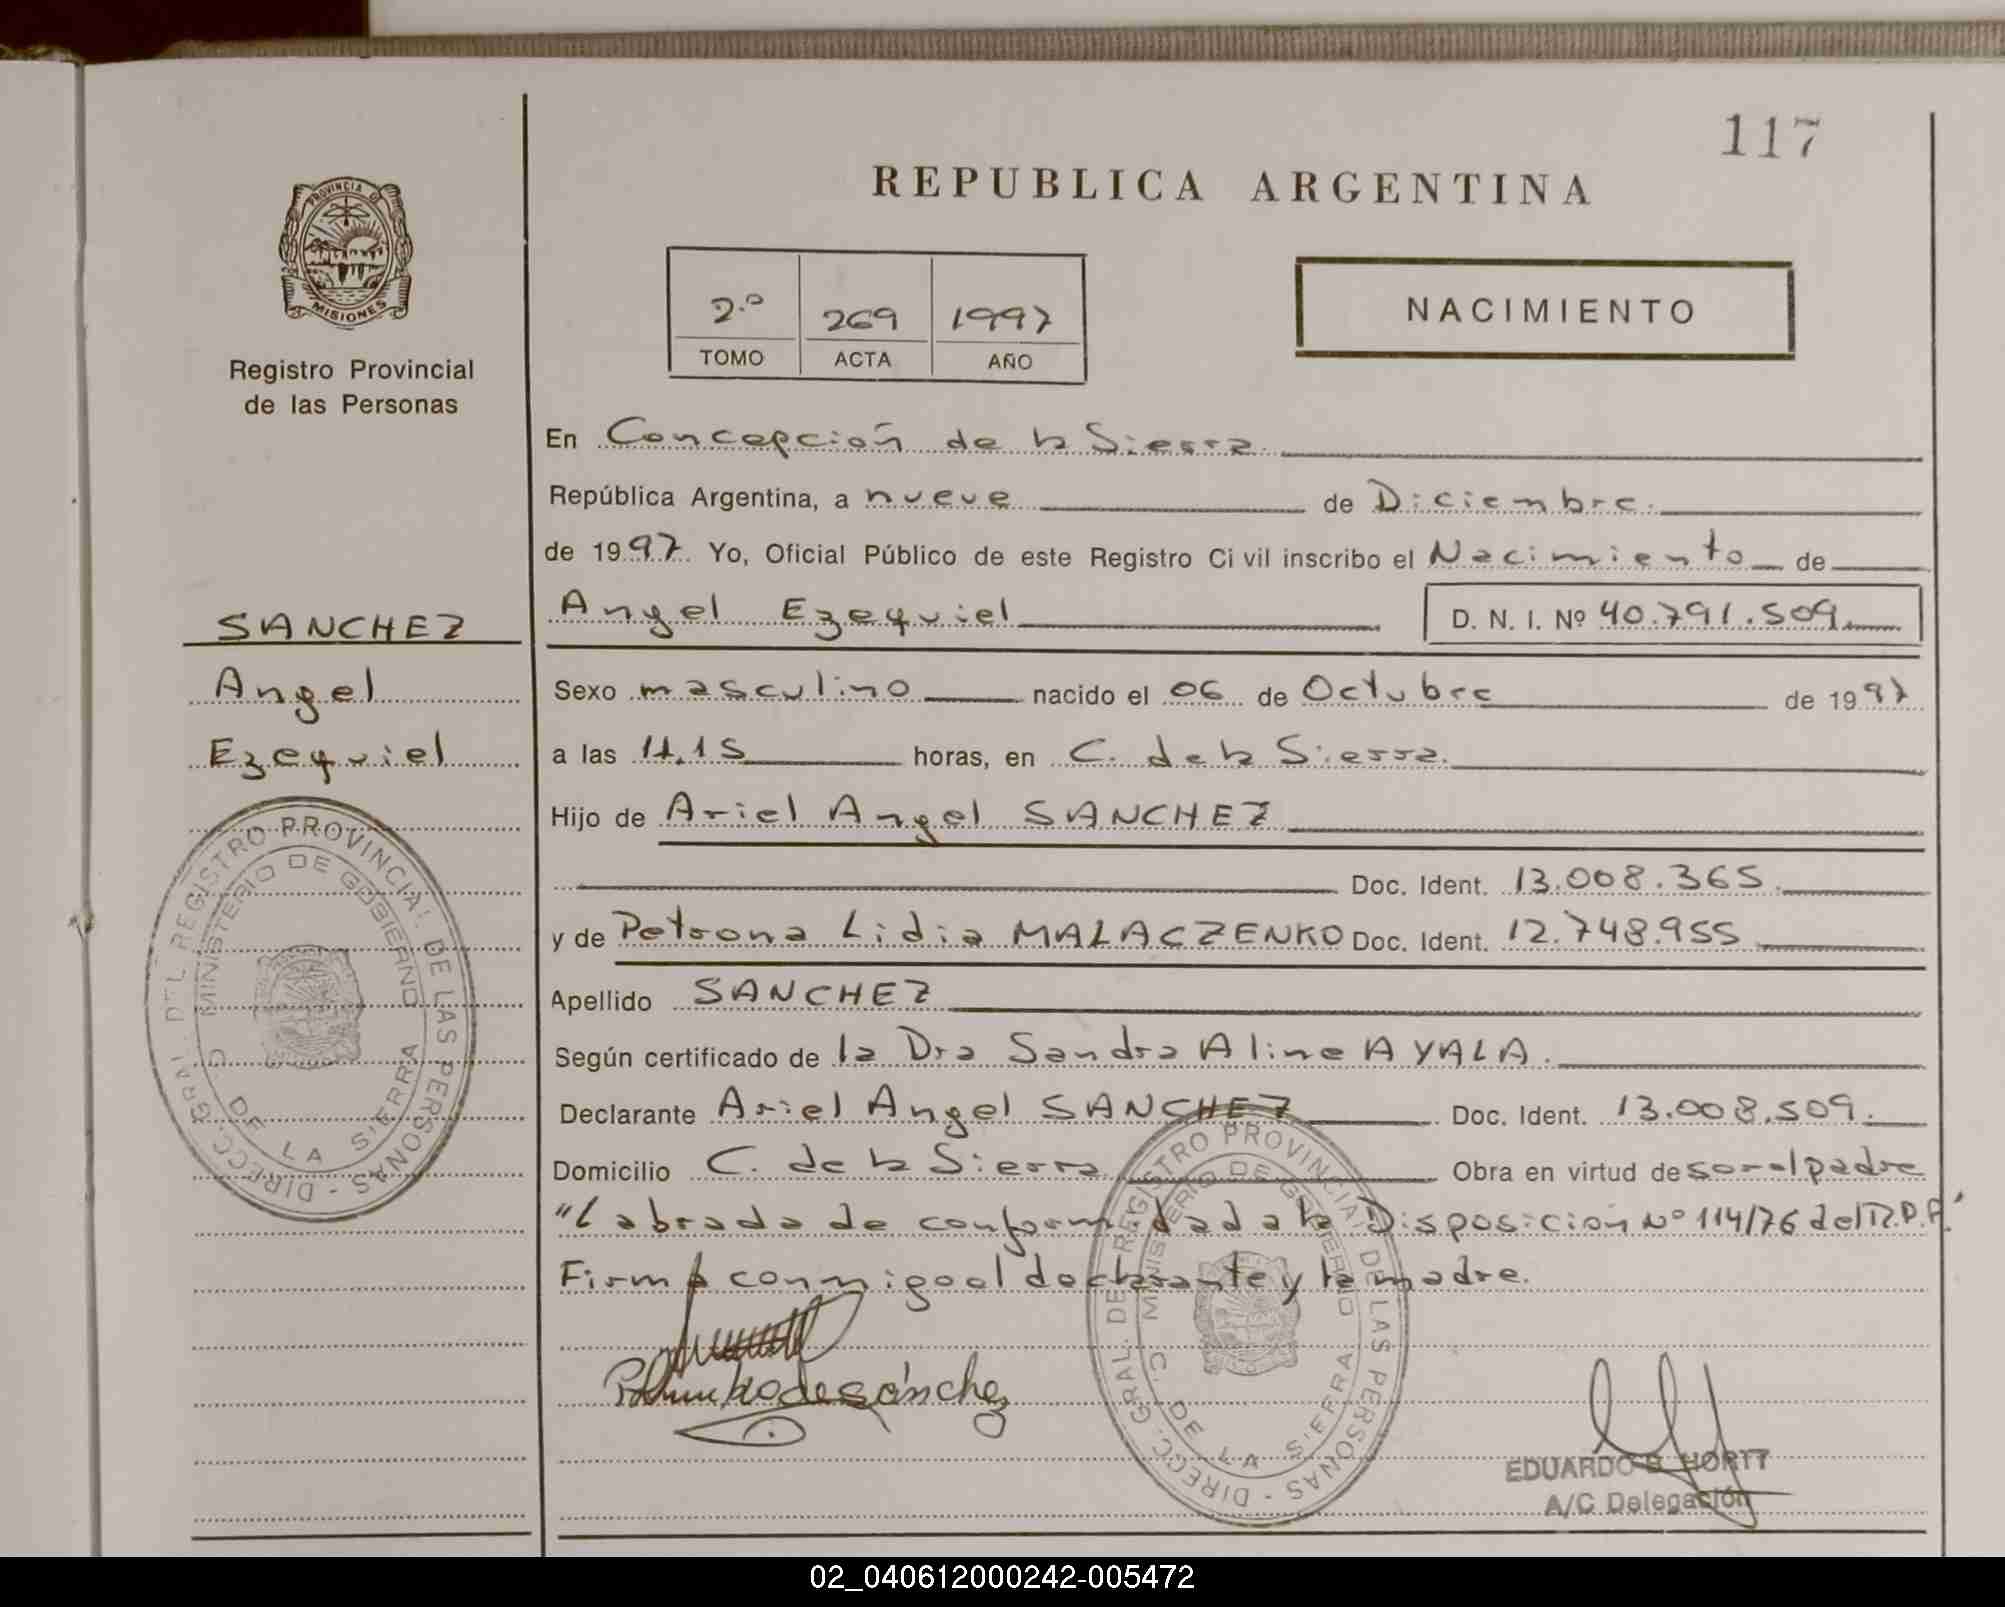 117
REPUBLICA ARGENTINA
PROVINCIA DE
MISIONES
Registro Provincial
de las Personas
2.º 269 1997
TOMO ACTA AÑO
NACIMIENTO
En Concepción de la Sierra.
República Argentina, a nueve de Diciembre.
de 1997. Yo, Oficial Público de este Registro Civil inscribo el Nacimiento de
SANCHEZ
Angel
Ezequiel
Angel Ezequiel D. N. I. Nº 40.791.509.
Sexo masculino nacido el 06 de Octubre de 1997
a las 11.15 horas, en C. de la Sierra.
Hijo de Ariel Angel SANCHEZ
Doc. Ident. 13.008.365.
y de Petrona Lidia MALACZENKO Doc. Ident. 12.748.955
Apellido SANCHEZ
Según certificado de la Dra Sandra Aline AYALA.
Declarante Ariel Angel SANCHEZ Doc. Ident. 13.008.509.
Domicilio C. de la Sierra. Obra en virtud de ser el padre
"Labrada de conformidad a la Disposición Nº 114/76 del R.P.P."
Firma conmigo el declarante y la madre.
DIRECC. GRAL. DEL REGISTRO PROVINCIAL DE LAS PERSONAS -
MINISTERIO DE GOBIERNO
C. DE LA SIERRA
DIRECC. GRAL. DEL REGISTRO PROVINCIAL DE LAS PERSONAS -
MINISTERIO DE GOBIERNO
C. DE LA SIERRA
de Sánchez
EDUARDO B. HORTT
A/C Delegación
02_040612000242-005472